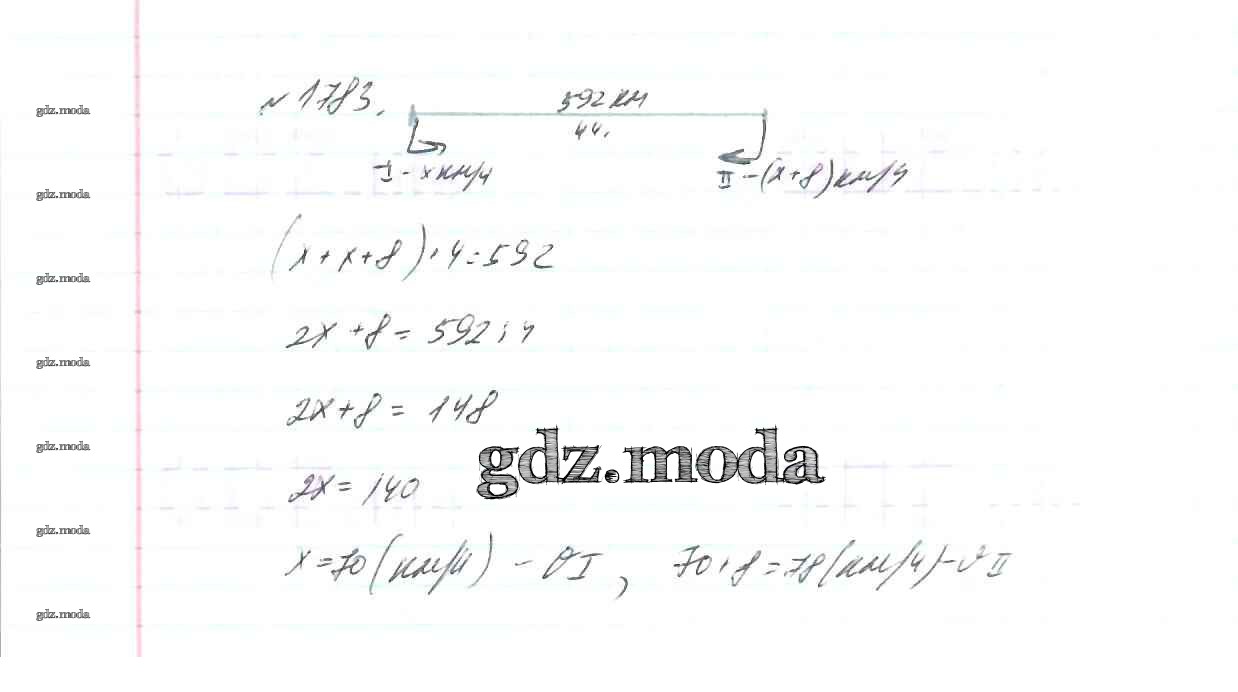 №1783.
592 км
4ч.
I - x км/ч
II - (x+8) км/ч
(x+x+8)·4=592
2x+8=592:4
2x+8=148
2x=140
x=70(км/ч) - vI, 70+8=78(км/ч)-vII
gdz.moda
gdz.moda
gdz.moda
gdz.moda
gdz.moda
gdz.moda
gdz.moda
gdz.moda